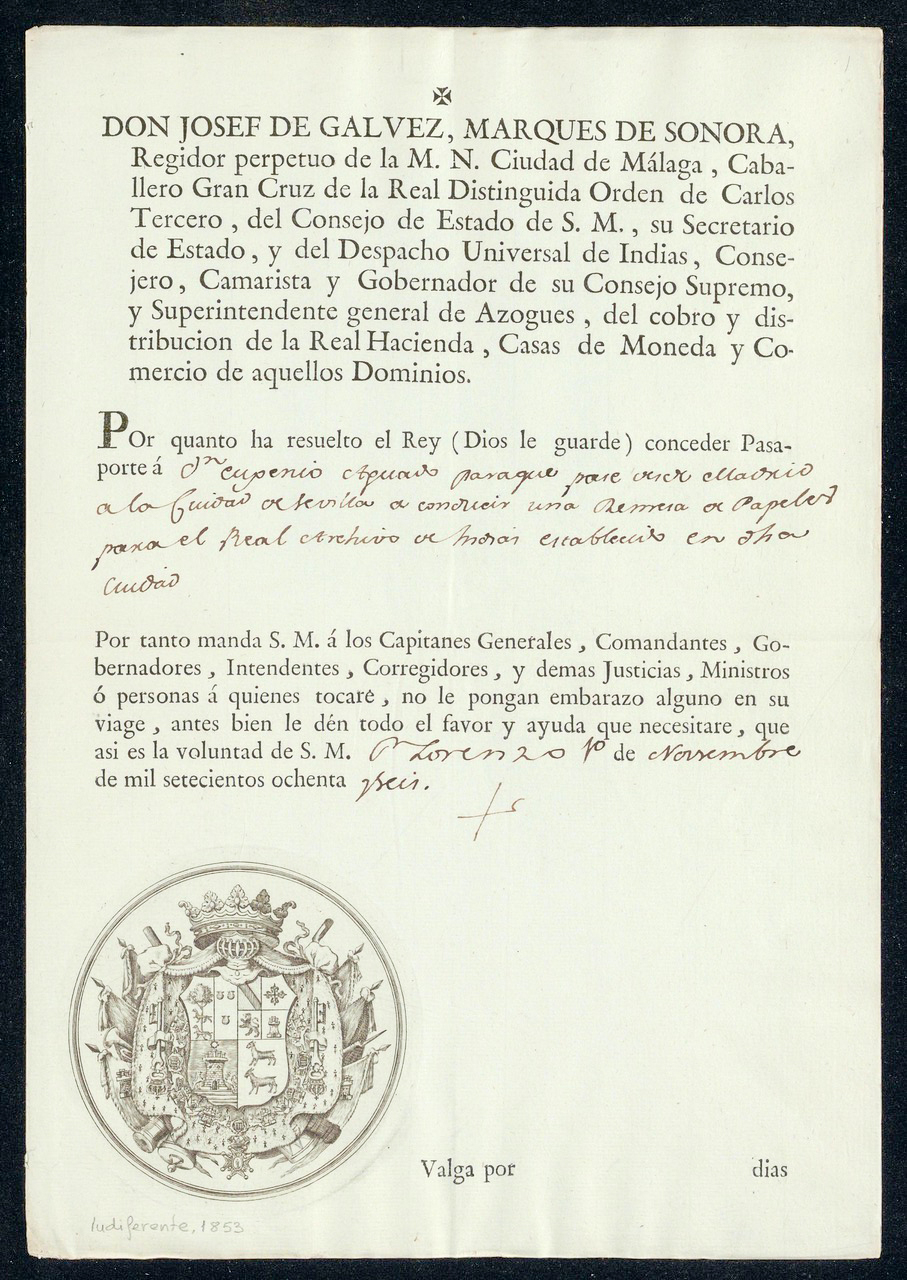 ✠
DON JOSEF DE GALVEZ, MARQUES DE SONORA,
Regidor perpetuo de la M. N. Ciudad de Málaga, Caba-
llero Gran Cruz de la Real Distinguida Orden de Carlos
Tercero, del Consejo de Estado de S. M., su Secretario
de Estado, y del Despacho Universal de Indias, Conse-
jero, Camarista y Gobernador de su Consejo Supremo,
y Superintendente general de Azogues, del cobro y dis-
tribucion de la Real Hacienda, Casas de Moneda y Co-
mercio de aquellos Dominios.
POr quanto ha resuelto el Rey (Dios le guarde) conceder Pasa-
porte á Dn. Eugenio Aguado para que pase desde Madrid
a la Ciudad de Sevilla a conducir una Remesa de Papeles
para el Real Archivo de Indias establecido en dha
Ciudad
Por tanto manda S. M. á los Capitanes Generales, Comandantes, Go-
bernadores, Intendentes, Corregidores, y demas Justicias, Ministros
ó personas á quienes tocare, no le pongan embarazo alguno en su
viage, antes bien le dén todo el favor y ayuda que necesitare, que
asi es la voluntad de S. M. Sn. Lorenzo 1º de Noviembre
de mil setecientos ochenta y seis.
Valga por dias
Indiferente, 1853